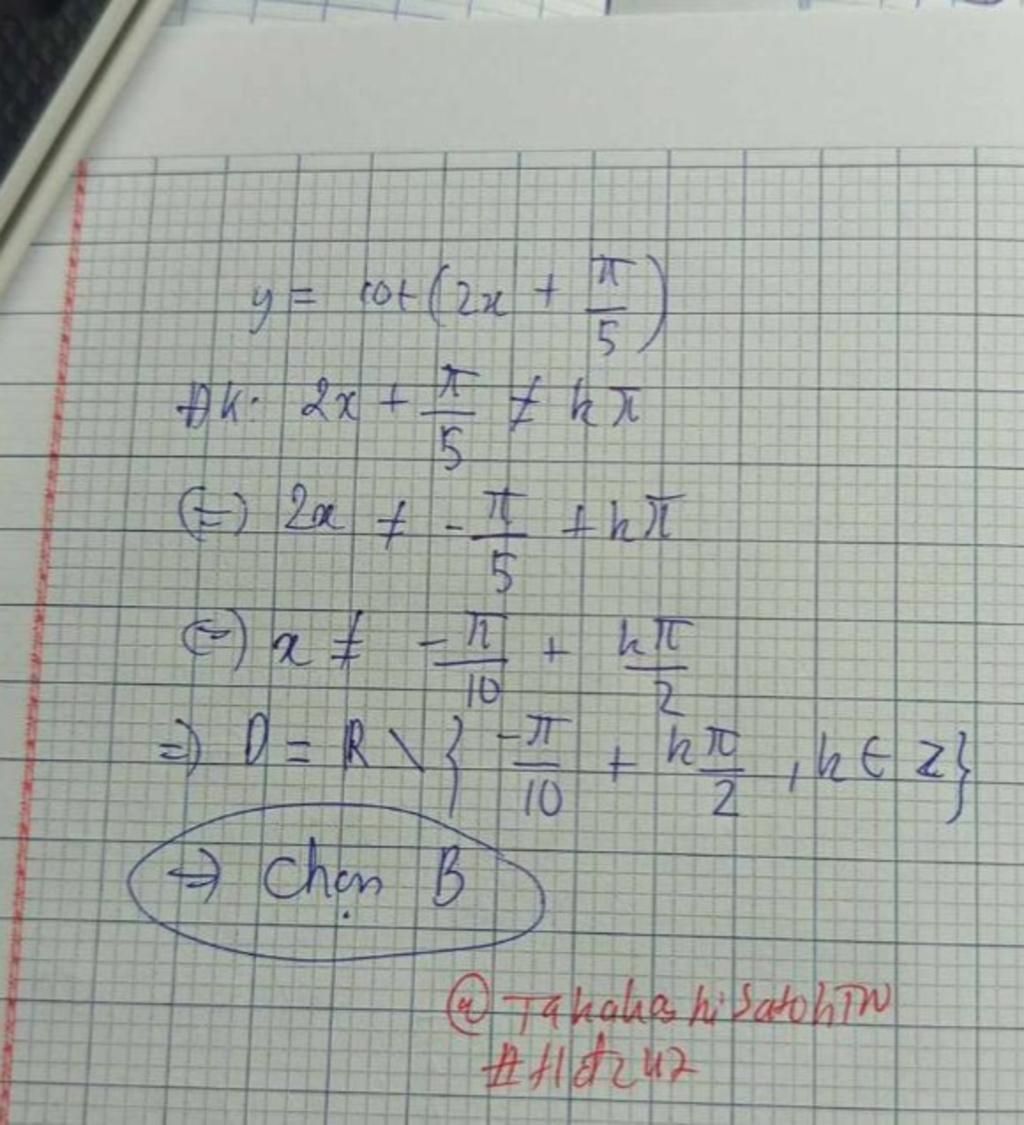 y = cot(2x + π/5)
ĐK: 2x + π/5 ≠ kπ
(=) 2x ≠ -π/5 + kπ
(=) x ≠ -π/10 + kπ/2
=) D = R \ { -π/10 + kπ/2 , k ∈ Z}
→ Chọn B
@TakahashiSatohTW